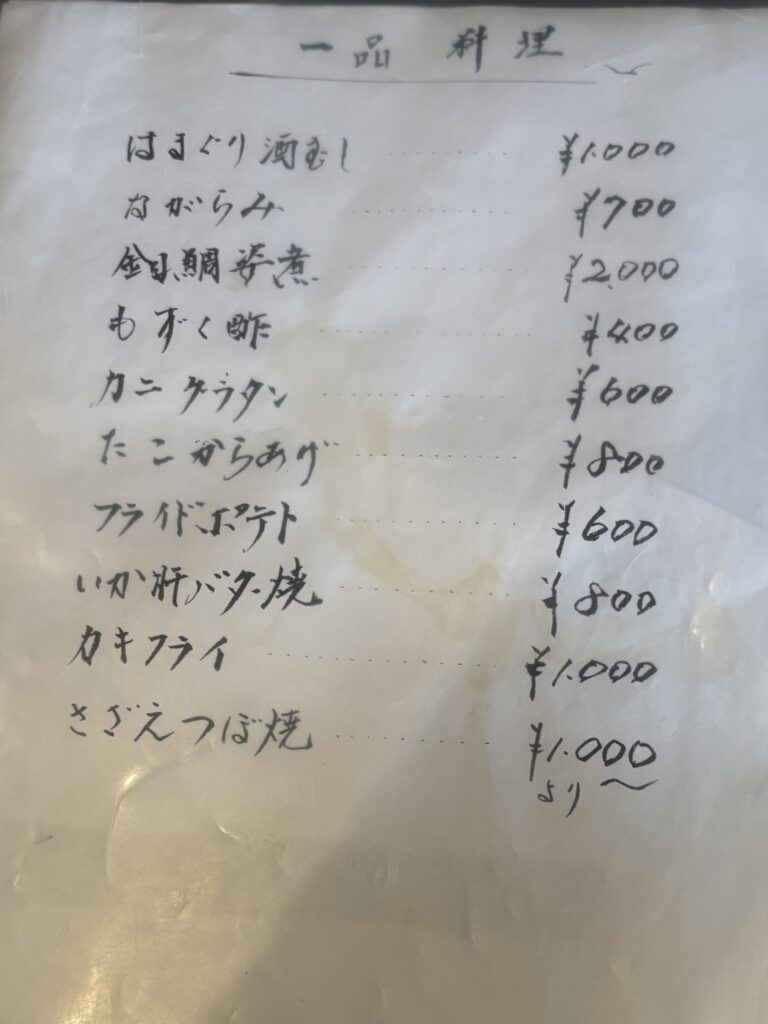 一品 料理
はまぐり酒むし ¥1.000
ながらみ ¥700
金目鯛姿煮 ¥2.000
もずく酢 ¥400
カニグラタン ¥600
たこからあげ ¥800
フライドポテト ¥600
いか肝バター焼 ¥800
カキフライ ¥1.000
さざえつぼ焼 ¥1.000
より〜